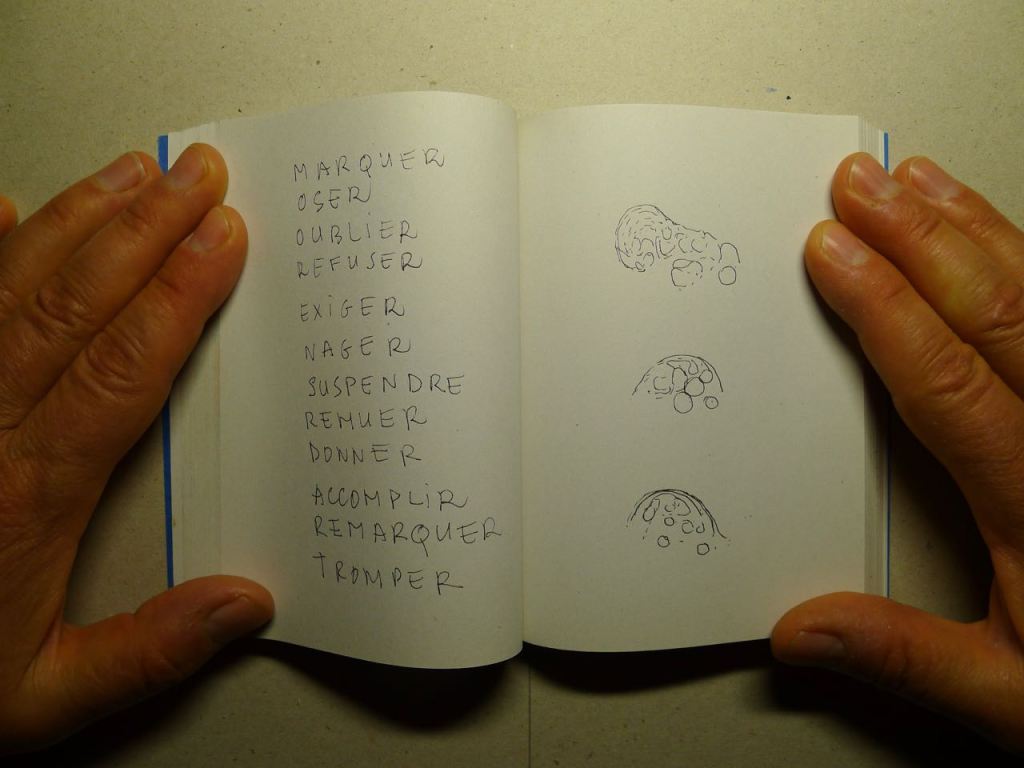 MARQUER
OSER
OUBLIER
REFUSER
EXIGER
NAGER
SUSPENDRE
REMUER
DONNER
ACCOMPLIR
REMARQUER
TROMPER